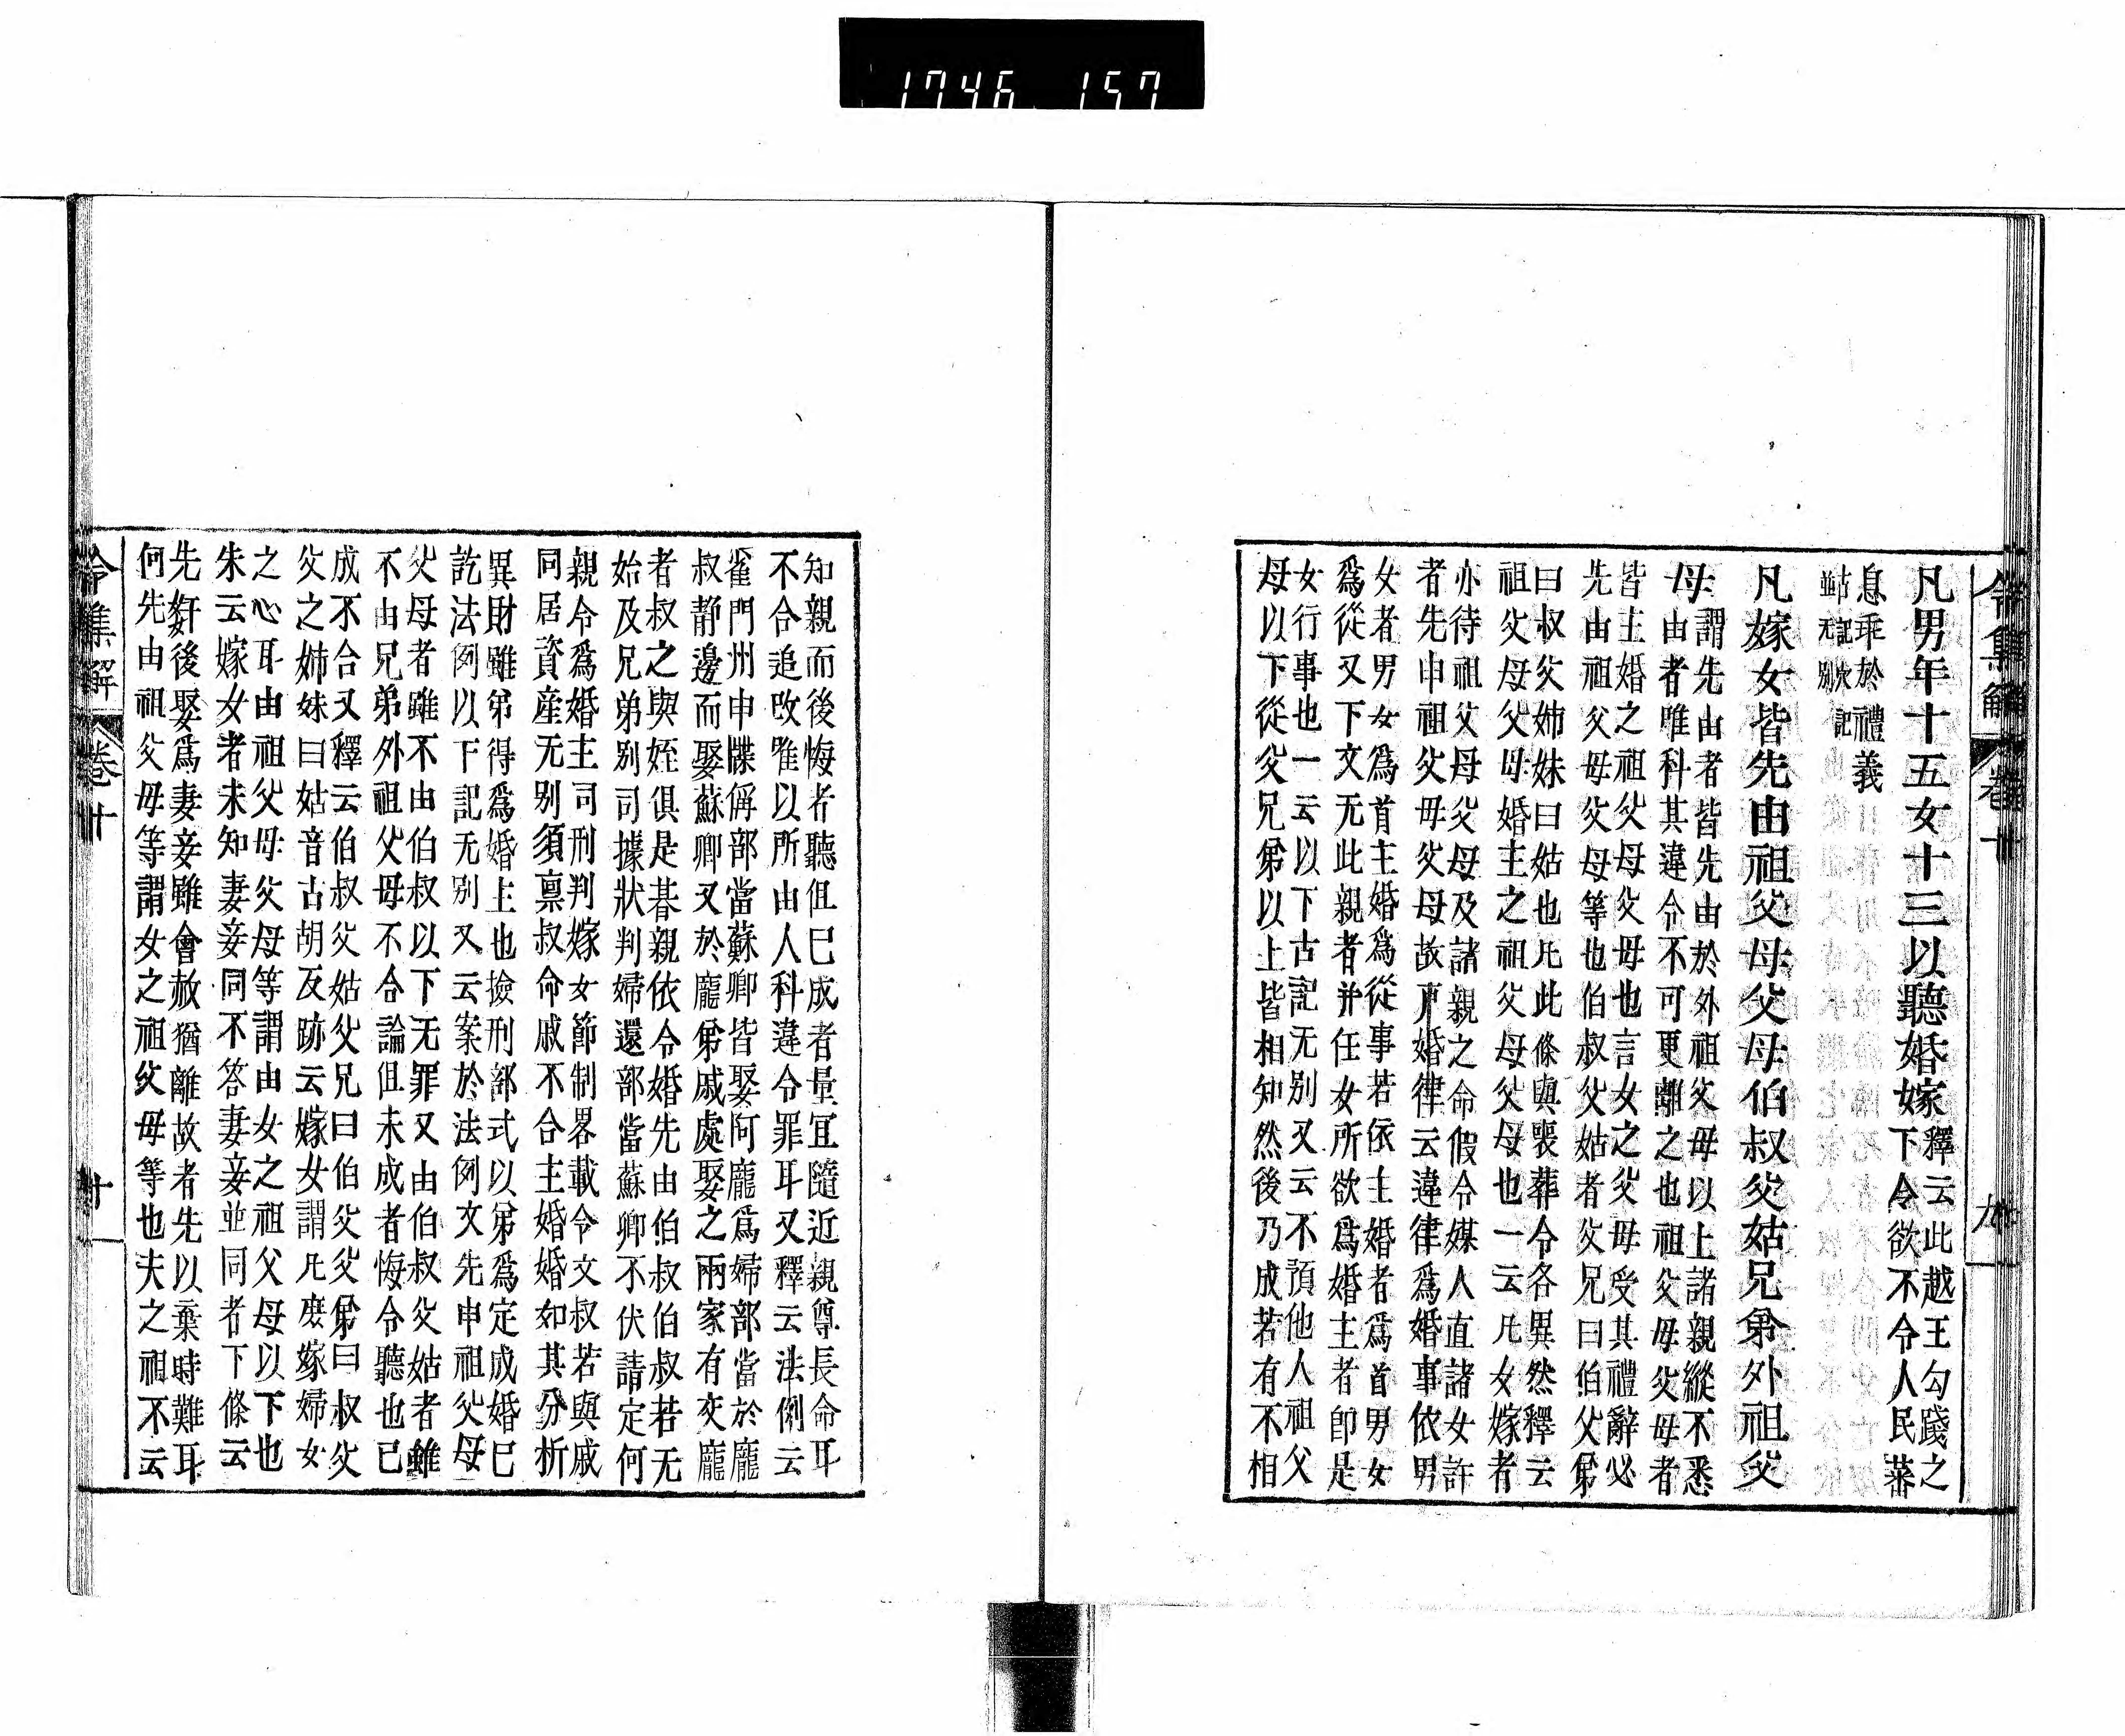 1746 157
令集解 卷十 九
凡男年十五女十三以聽婚嫁
釋云此越王勾踐之
下令欲不令人民蕃
息乖於禮義
古記穴記
並无別
凡嫁女皆先由祖父母父母伯叔父姑兄弟外祖父
母
謂先由者皆先由於外祖父母以上諸親縱不悉
由者唯科其違令不可更離之也祖父母父母者
皆主婚之祖父母父母也言女之父母受其禮辭必
先由祖父母父母等也伯叔父姑者父兄曰伯父弟
曰叔父姊妹曰姑也凡此條與喪葬令各異然釋云
祖父母父母婚主之祖父母父母也一云凡女嫁者
亦待祖父母父母及諸親之命假令媒人直諸女許
者先申祖父母父母故戸婚律云違律爲婚事依男
女者男女爲首主婚爲從事若依主婚者爲首男女
爲從又下文无此親者并任女所欲爲婚主者卽是
女行事也一云以下古記无別又云不預他人祖父
母以下從父兄弟以上皆相知然後乃成若有不相
知親而後悔者聽但已成者量宜隨近親尊長命耳
不合追改唯以所由人科違令罪耳又釋云法例云
雍門州申牒偁部當蘇卿皆娶阿龐爲婦部當於龐
叔靜邊而娶蘇卿又於龐弟戚處娶之兩家有交龐
者叔之與姪俱是朞親依令婚先由伯叔伯叔若无
始及兄弟別司據狀判婦還部當蘇卿不伏請定何
親令爲婚主司刑判嫁女節制畧載令文叔若與戚
同居資産无別須禀叔命戚不合主婚婚如其分析
異財雖弟得爲婚主也撿刑部式以弟爲定成婚已
訖法例以下記无別又云案於法例文先申祖父母
父母者雖不由伯叔以下无罪又由伯叔父姑者雖
不由兄弟外祖父母不合論但未成者悔令聽也已
成不合又釋云伯叔父姑父兄曰伯父父弟曰叔父
父之姉妹曰姑音古胡反跡云嫁女謂凡庶嫁婦女
之心耳由祖父母父母等謂由女之祖父母以下也
朱云嫁女者未知妻妾同不答妻妾並同者下條云
先姧後娶爲妻妾雖會赦猶離故者先以棄時難耳
何先由祖父母等謂女之祖父母等也夫之祖不云
令集解 卷十 十